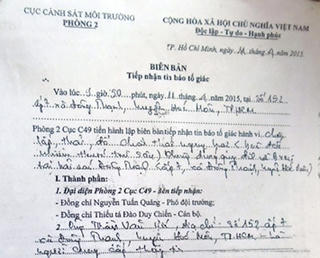 CỤC CẢNH SÁT MÔI TRƯỜNG
PHÒNG 2
CỘNG HÒA XÃ HỘI CHỦ NGHĨA VIỆT NAM
Độc lập - Tự do - Hạnh phúc
TP. Hồ Chí Minh, ngày 11 tháng 4 năm 2015
BIÊN BẢN
Tiếp nhận tin báo tố giác
Vào lúc giờ phút, ngày 11 tháng 4 năm 2015, tại Số 152
ấp 7 xã Đông Thạnh, huyện Hóc Môn, TP.HCM
Phòng 2 Cục C49 tiến hành lập biên bản tiếp nhận tin báo tố giác hành vi
lấp, thải, đổ chất thải nguy hại
xã Đông Thạnh, huyện Hóc Môn
I. Thành phần:
1. Đại diện Phòng 2 Cục C49 - Bên tiếp nhận:
- Đồng chí Nguyễn Tuấn Quảng - Phó đội trưởng;
- Đồng chí Thiếu tá Đào Duy Chiến - Cán bộ.
2. Ông Trần Văn địa chỉ - Số 152 ấp 7
xã Đông Thạnh, huyện Hóc Môn, TP.HCM - là
người cung cấp